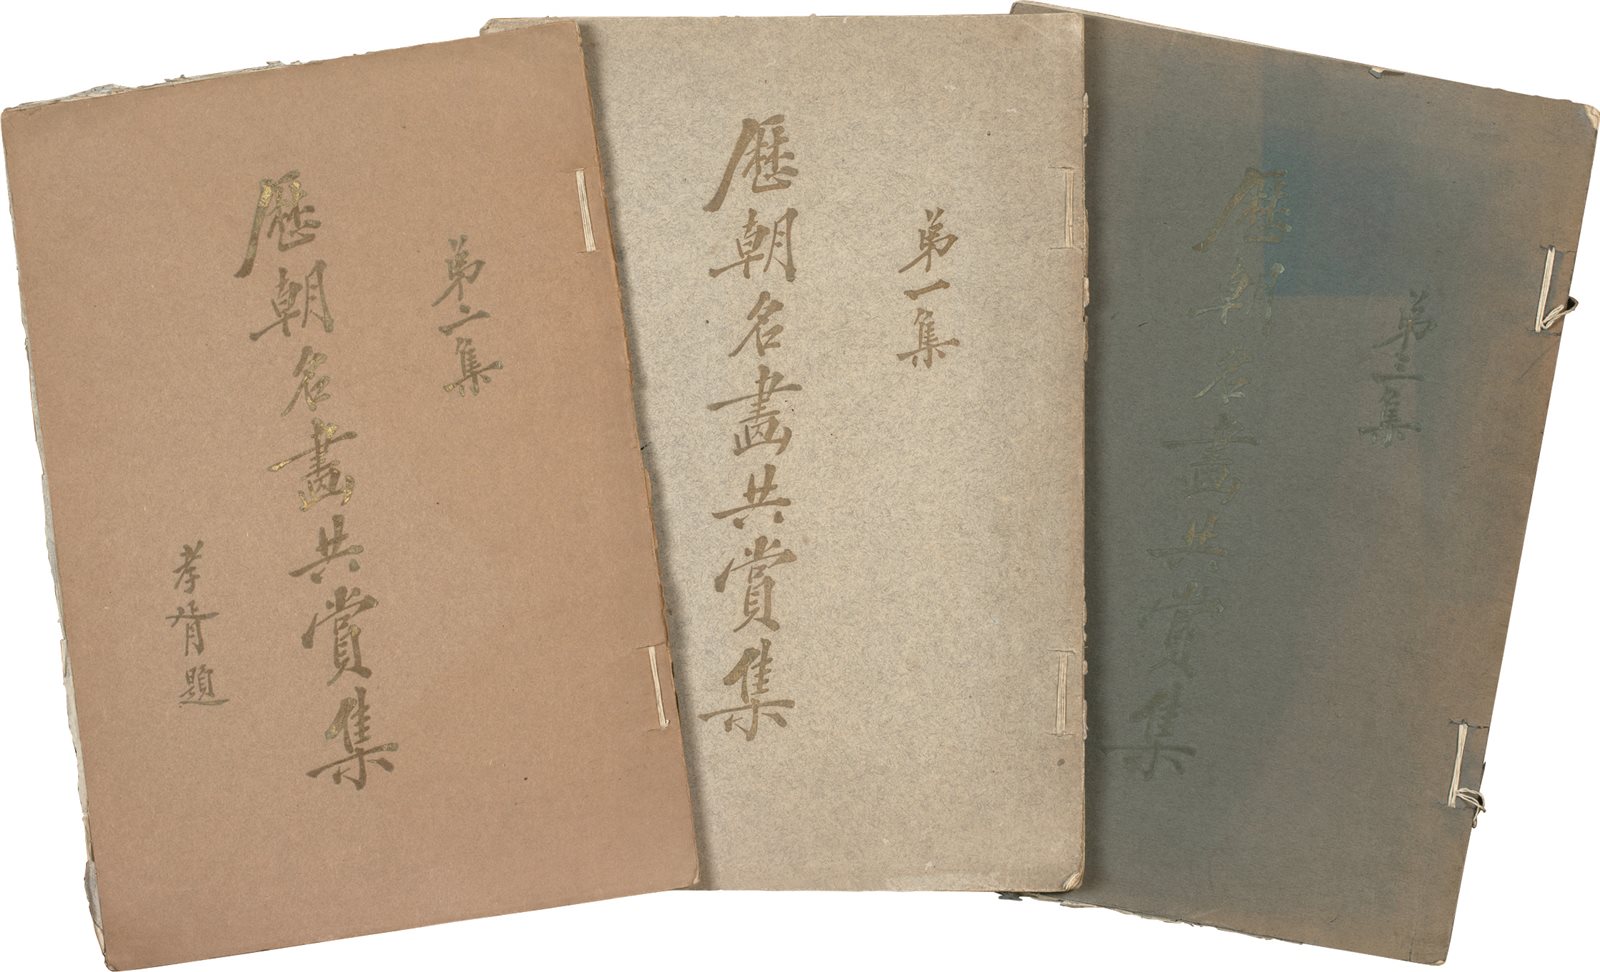 第二集
歷朝名畫共賞集
孝胥題
第一集
歷朝名畫共賞集
第三集
歷朝名畫共賞集